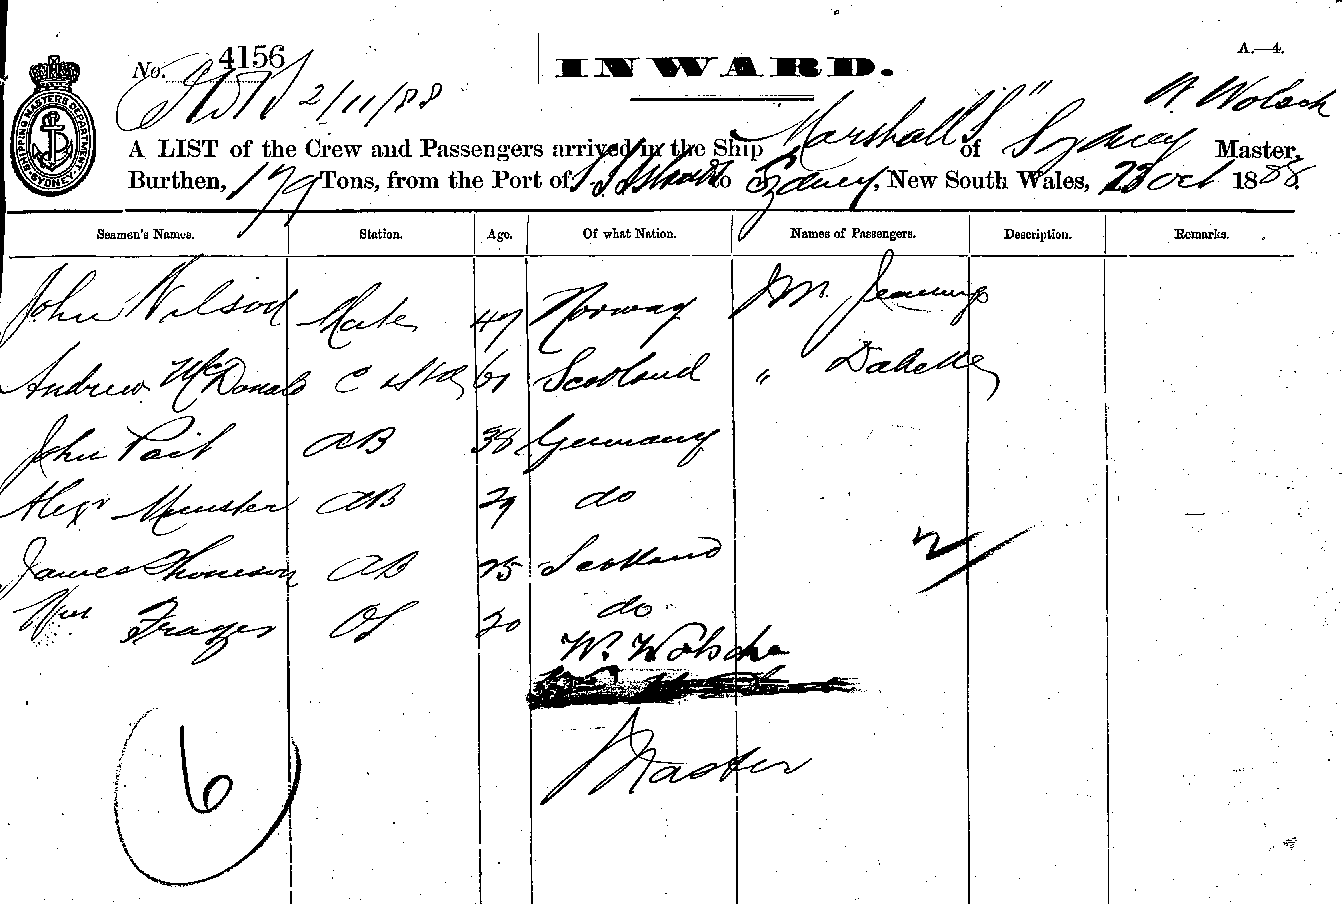 A.—4.
No. 4156
INWARD.
2/11/88
W. Wolsch
A LIST of the Crew and Passengers arrived in the Ship "Marshall S" of Sydney Master,
Burthen, 179 Tons, from the Port of S. S. Islands to Sydney, New South Wales, 23 Oct 1888.
Seamen's Names. Station. Age. Of what Nation. Names of Passengers. Description. Remarks.
John Nilson Mate 47 Norway Mr. Jennings
Andrew McDonald C & Std 61 Scotland "
John Pait AB 38 Germany
Alexr Munster AB 29 do
James Thomson AB 25 Scotland
Wm Frazer OS 20 do
2/
W. Wolsche
Master
6
SHIPPING MASTERS DEPARTMENT SYDNEY